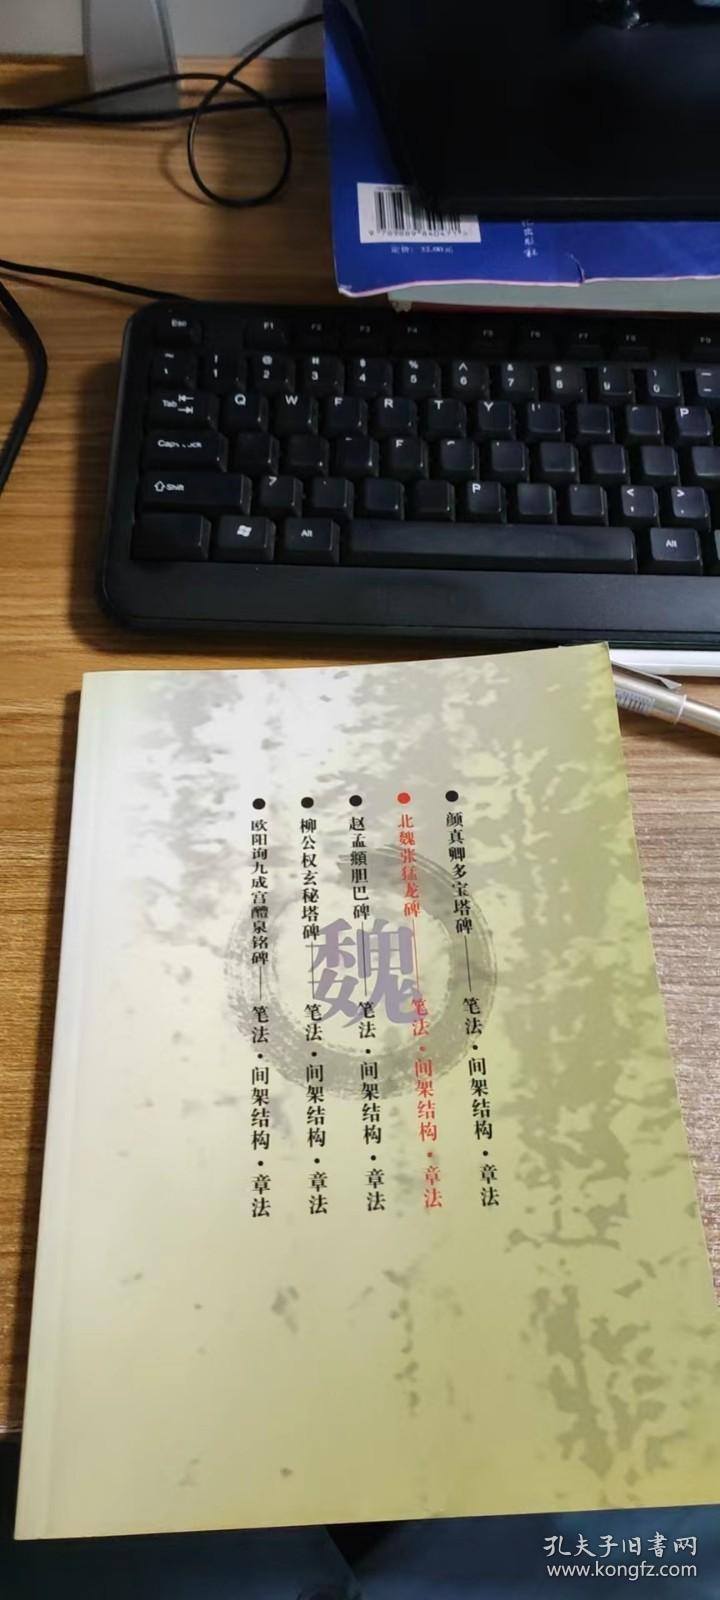 定价: 32.00元
出版社
Esc F1 F2 F3 F4 F5 F6 F7 F8 F9
~ ! @ 2 3 $ 4 % 5 6 & 7 8
Tab Q W R T Y P
Shift P
Alt Alt
颜真卿多宝塔碑——笔法·间架结构·章法
北魏张猛龙碑——笔法·间架结构·章法
赵孟頫胆巴碑——笔法·间架结构·章法
柳公权玄秘塔碑——笔法·间架结构·章法
欧阳询九成宫醴泉铭碑——笔法·间架结构·章法
魏
孔夫子旧书网
www.kongfz.com